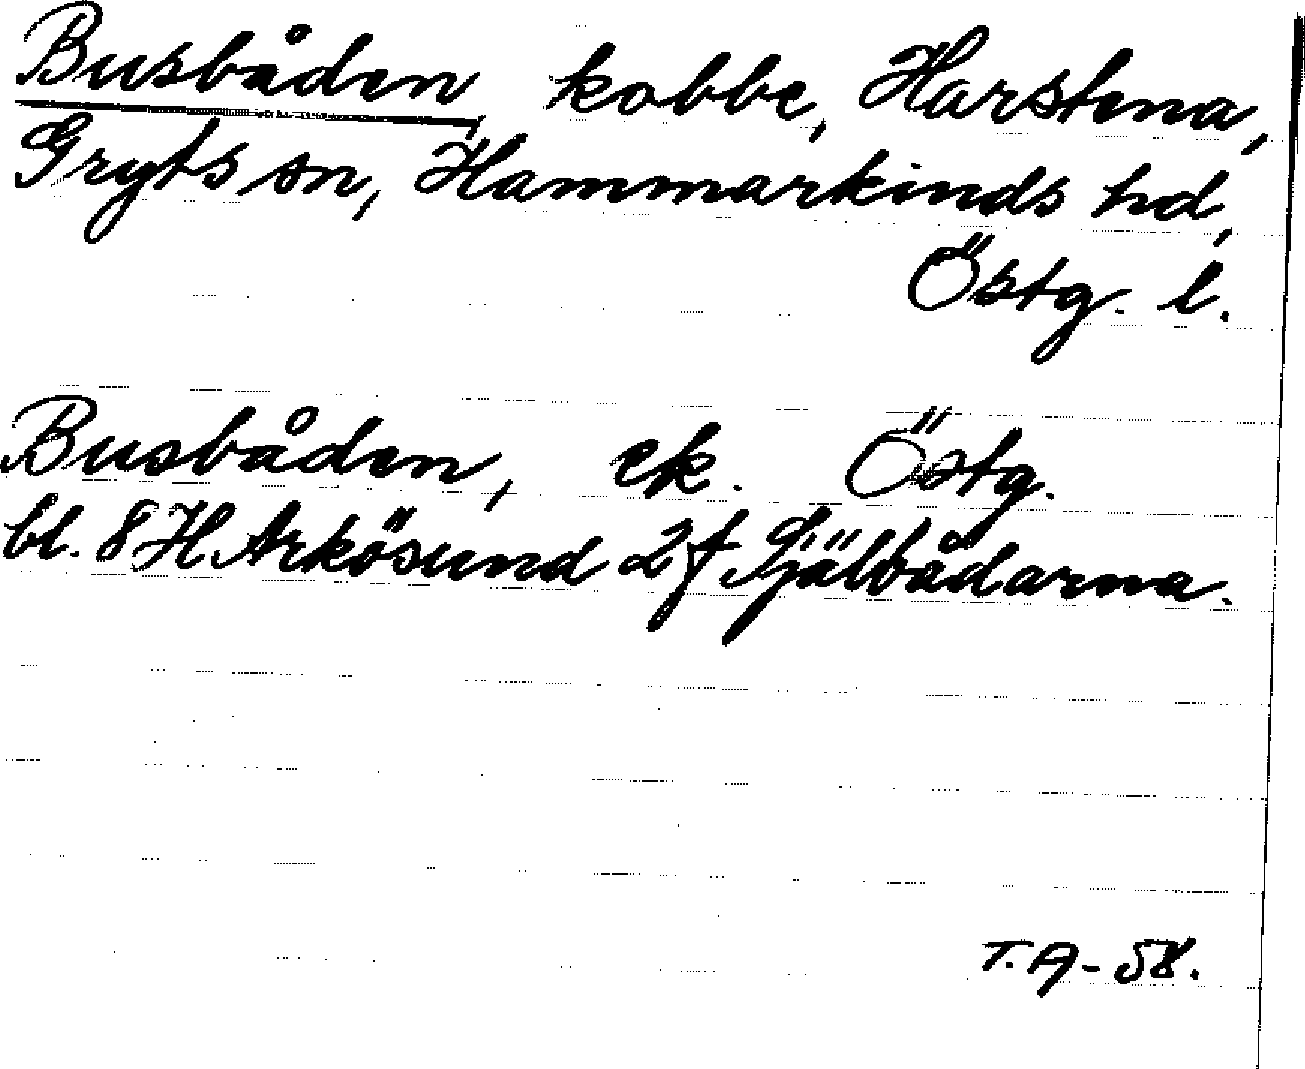 Busbåden, kobbe, Harstena,
Gryts sn, Hammarkinds hd,
Östg. l.
Busbåden, ek. Östg.
bl. 8 H Arkösund 2 f Själbådarna.
T. A-58.